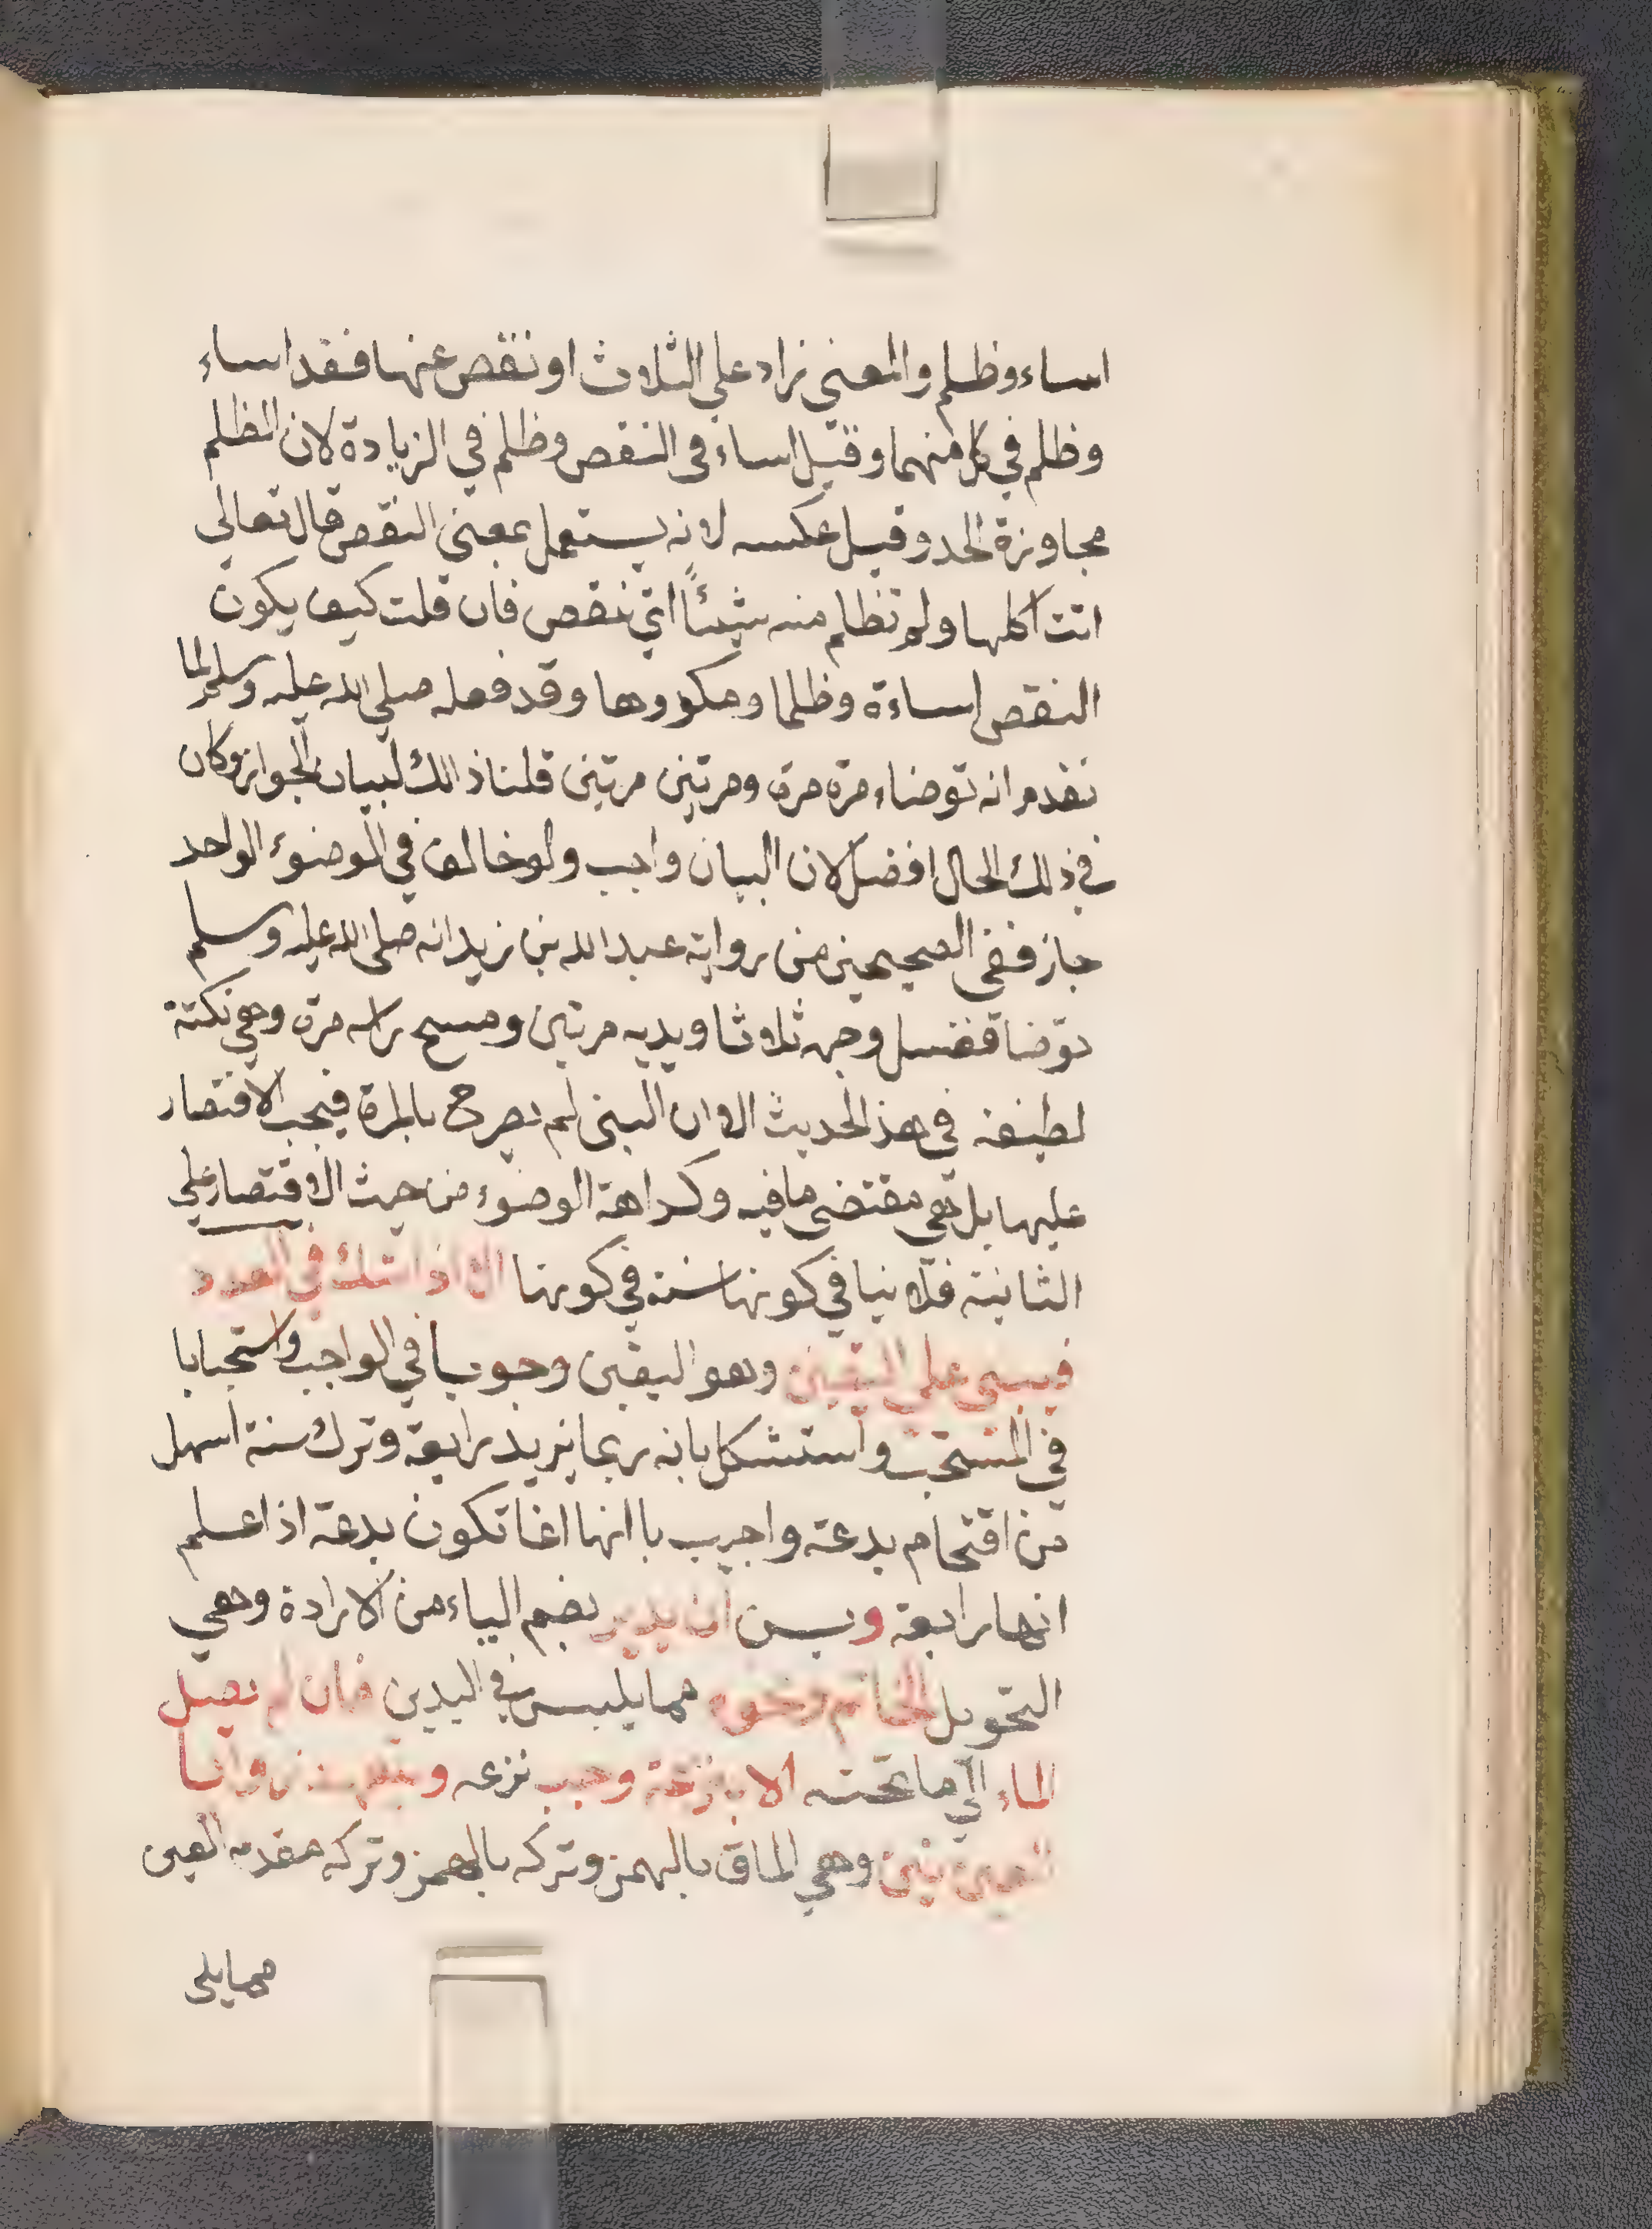 اساء وظلم والمعنى زاد على الثلاث او نقص عنها فقد اساء
وظلم في كل منهما وقيل اساء في النقص وظلم في الزيادة لان الظلم
مجاوزة الحد وقيل عكسه لانه يستعمل بمعنى النقص قال تعالى
اتت اكلها ولم تظلم منه شيئًا اي تنقص فان قلت كيف يكون
النقص اساءة وظلما ومكروها وقد فعله صلى الله عليه وسلم لما
تقدم انه توضاء مرة مرة ومرتين مرتين قلنا ذالك لبيان الجواز وكان
في ذلك الحال افضل لان البيان واجب ولو خالف في الوضوء الواحد
جاز ففي الصحيحين من رواية عبد الله بن زيد انه صلى الله عليه وسلم
توضا فغسل وجهه ثلاثا ويديه مرتين ومسح راسه مرة وهي نكتة
لطيفة في هذ الحديث الا ان النبي لم يصرح بالمرة فيجب الاقتصار
عليها بل هي مقتضى ما فيه وكراهة الوضوء من حيث الاقتصار على
الثانية فلا نيا في كونها سنة في كونها اذا شك في العدد
فيبني على اليقين وهو اليقين وجوبا في الواجب واستحبابا
في المستحب واستشكل بانه ربما يزيد رابعة وترك سنة اسهل
من اقتحام بدعة واجيب با انها انما تكون بدعة اذا علم
انها رابعة ويسن ان يدير بضم الياء من الارادة وهي
التحويل الخاتم ونحوه مما يلبس في اليدين فان لم يصل
الماء الى ما تحته الا بنزعه وجب نزعه
وهي الماق بالهمز وتركه بالهمز وتركه مقدمه العين
مما يلي